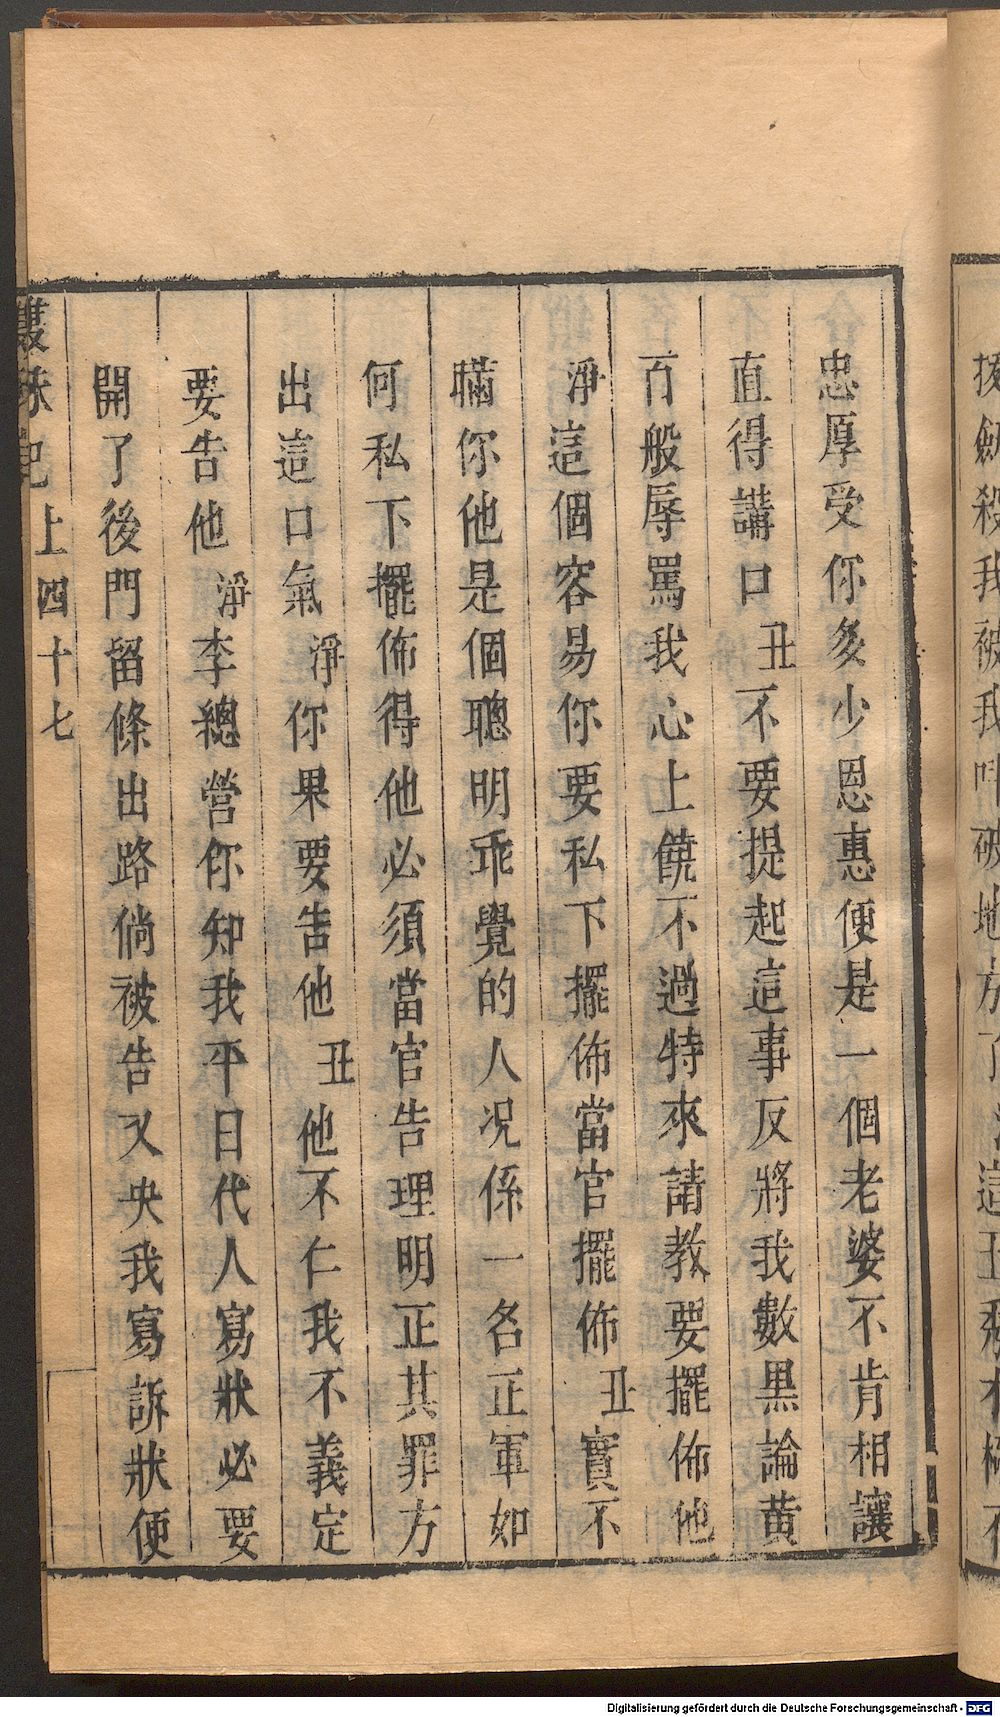 忠厚受你多少恩惠便是一個老婆不肯相讓
直得講口丑不要提起這事反將我數黑論黃
百般辱罵我心上饒不過特來請教要擺佈他
淨這個容易你要私下擺佈當官擺佈丑實不
瞞你他是個聰明乖覺的人况係一名正軍如
何私下擺佈得他必須當官告理明正其罪方
出這口氣淨你果要告他丑他不仁我不義定
要告他淨李總營你知我平日代人寫狀必要
開了後門留條出路倘被告又央我寫訴狀便
雙珠記 上 四十七
Digitalisierung gefördert durch die Deutsche Forschungsgemeinschaft - DFG